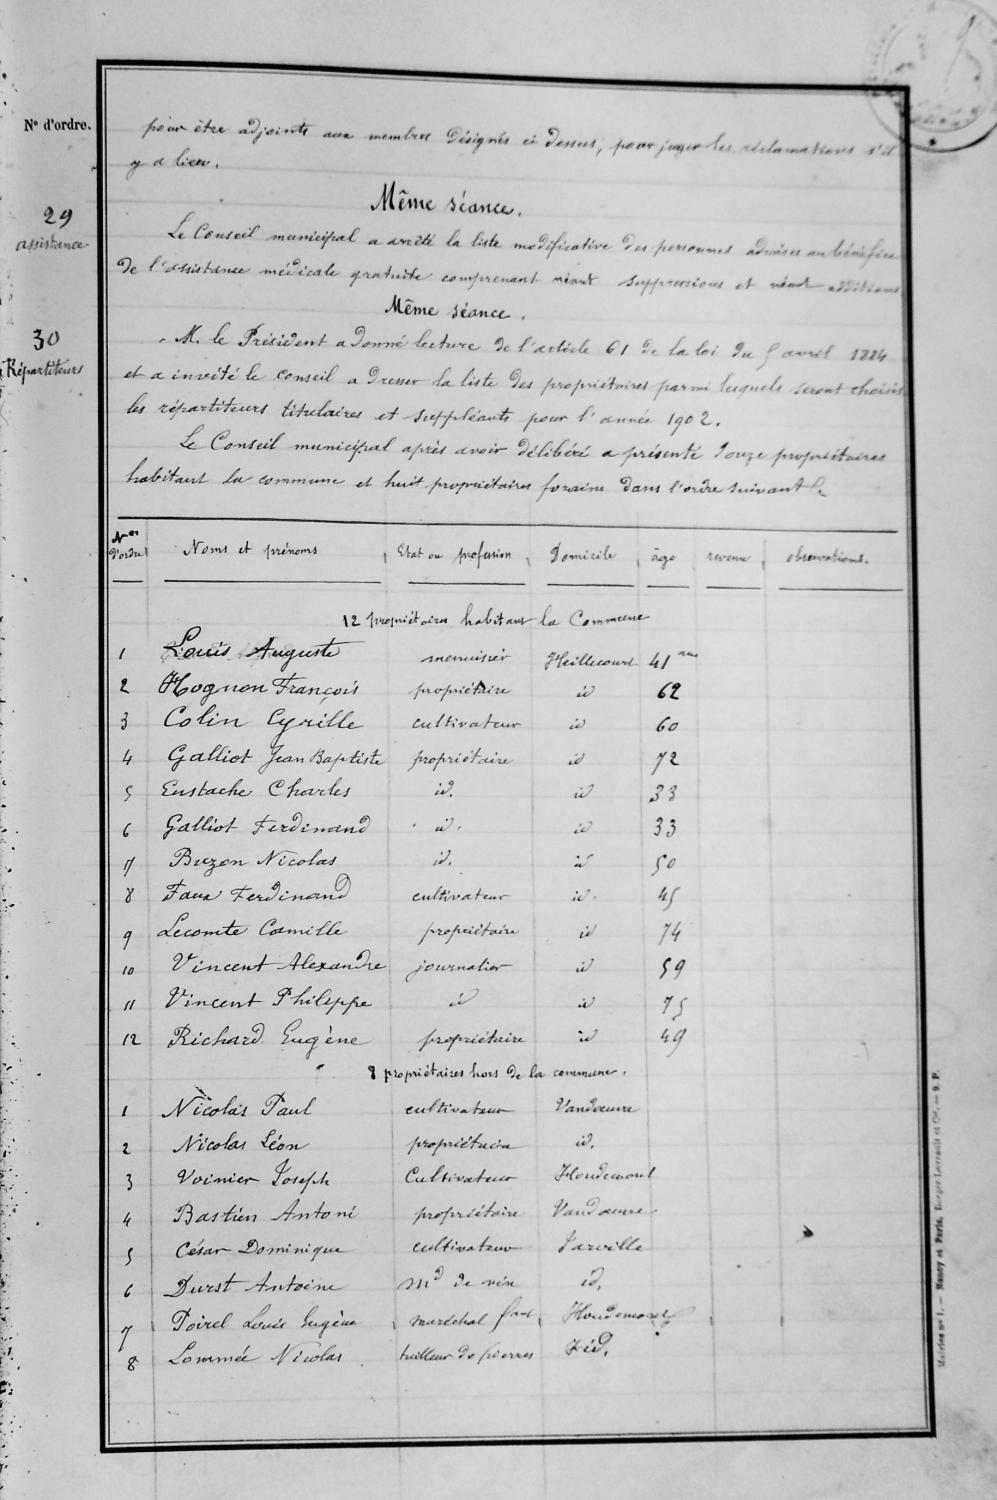 N° d'ordre.
pour être adjoints aux membres désignés ci dessus, pour juger les réclamations s'il
y a lieu.
Même séance.
29
assistance
Le Conseil municipal a arrêté la liste modificative des personnes admises au bénéfice
de l'assistance médicale gratuite comprenant néant suppressions et néant additions
Même séance.
30
Répartiteurs
M. le Président a donné lecture de l'article 61 de la loi du 5 avril 1884
et a invité le conseil a dresser la liste des propriétaires parmi lesquels seront choisis
les répartiteurs titulaires et suppléants pour l'année 1902.
Le Conseil municipal après avoir délibéré a présenté douze propriétaires
habitant la commune et huit propriétaires forains dans l'ordre suivant
Nos d'ordre Noms et prénoms Etat ou profession Domicile âge revenu observations.
12 propriétaires habitant la Commune
1 Louis Auguste menuisier Heillecourt 41 ans
2 Hognon François propriétaire id 62
3 Colin Cyrille cultivateur id 60
4 Galliot Jean Baptiste propriétaire id 72
5 Eustache Charles id. id 33
6 Galliot Ferdinand id. id 33
7 Buzon Nicolas id. id 50
8 Faux Ferdinand cultivateur id. 45
9 Lecomte Camille propriétaire id 74
10 Vincent Alexandre journalier id 59
11 Vincent Philippe id id 75
12 Richard Eugène propriétaire id 49
8 propriétaires hors de la commune.
1 Nicolas Paul cultivateur Vandœuvre
2 Nicolas Léon propriétaire id.
3 Voinier Joseph Cultivateur Houdemont
4 Bastien Antoni propriétaire Vandœuvre
5 César Dominique cultivateur Jarville
6 Durst Antoine Md de vin id.
7 Poirel Louis Eugène maréchal fant Houdemont
8 Lommée Nicolas tailleur de pierres id.